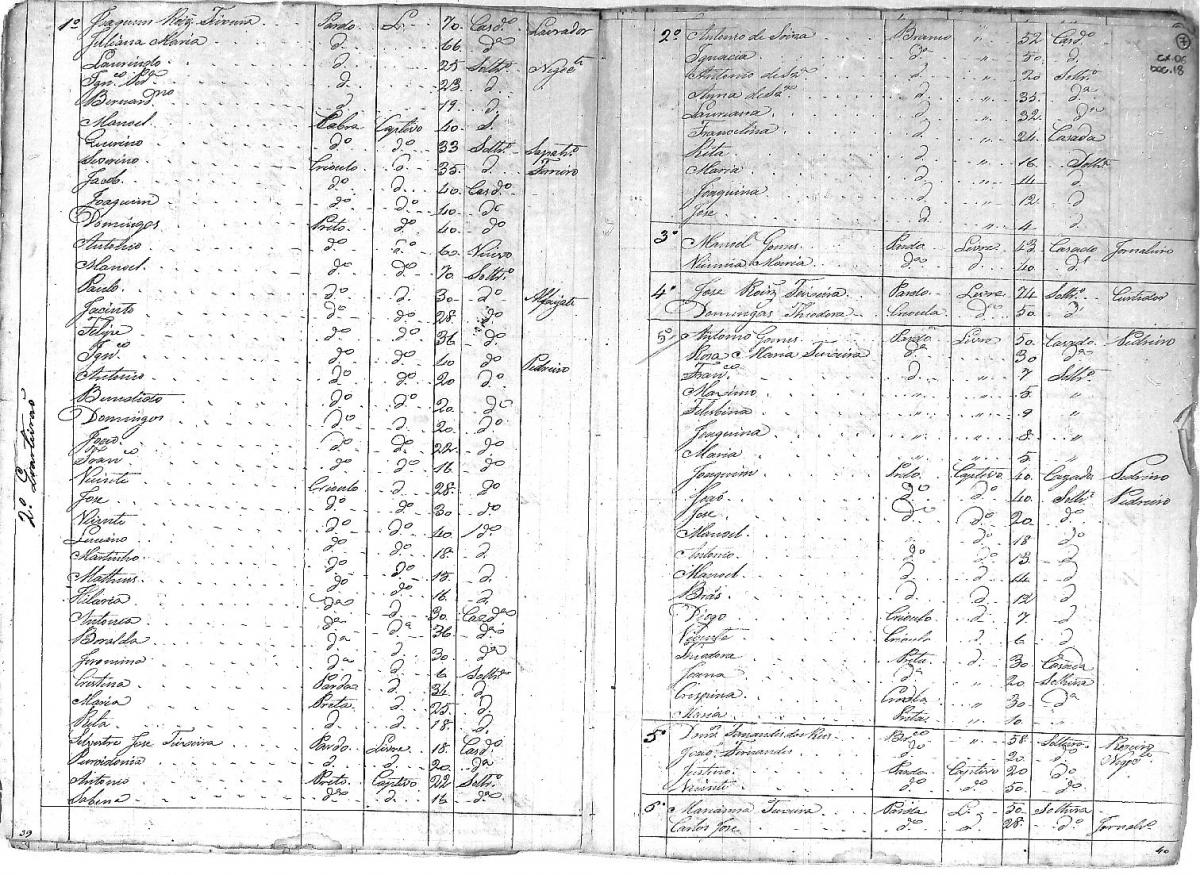 2º Quarteirão
1º Joaquim Roiz Teixeira Pardo L. 70 Casdº Lavrador
Juliana Maria dº 66 dª
Laurindo d. 25 Soltrº Negocte
Ignco d. 23 d.
Bernardno d 19 d.
Manoel Cabra Captivo 40 d.
Quirino dº dº 33 Soltrº Sapatrº
Severino Crioulo d. 35 d. Ferreiro
Jacob dº d. 40 Casdº
Joaquim dº dº 40 dº
Domingos Preto dº 40 dº
Antonio dº dº 60 Viuvo
Manoel dº dº 70 Soltrº
Paulo dº d. 30 dº Alfaiate
Jacinto dº d. 28 dº
Felipe dº dº 36 dº
Ignco dº dº 40 dº Pedreiro
Antonio dº dº 20 dº
Benedicto dº dº 20 dº
Domingos dº dº 20 dº
João dº dº 22 dº
Franco dº dº 16 dº
Vicente Crioulo d. 28 dº
Jose dº d. 30 dº
Vicente dº dº 40 dº
Luciano dº dº 18 d.
Martinho dº dº 15 d.
Matheus dº dº 16 d.
Hilaria dª d. 30 Casdª
Antonia dª dª 36 dª
Boralda dª d. 30 dª
Jeronima dª d. 6 Soltrª
Cristina Parda d. 34 d.
Maria Preta d. 25 d.
Rita d. d. 18 d.
Silvestre Jose Teixeira Pardo Livre 18 Casdº
d. d. 20 dª
Antonio Preto Captivo 22 Soltrº
Sabina dª d. 16 dª
39
7
CX.06
DOC.18
2º Antonio de Souza Branco " 52 Casdº
Ignacia dª " 50 d.
Antonio de d " 20 Soltrº
Anna de d " 35 dª
Lauriana d " 32 dª
Francelina d " 24 Casada
Rita d " 16 Soltrª
Maria d " 14 d.
Joaquina d " 12 d.
Jose d " 4 d.
3º Manoel Gomes Pardo Livre 43 Casado Jornaleiro
Maria dª " 40 dª
4º Jose Roiz Teixeira Pardo Livre 74 Soltrº Curtidor
Domingas Thiodora Crioula dª 50 dª
5º Antonio Gomes Pardo Livre 50 Casado Pedreiro
Rosa Maria Teixeira dª " 30 dª
Franco d " 7 Soltrº
Maximo " " 5 "
Felisbina " " 9 "
Joaquina " " 8 "
Maria " " 5 "
Joaquim Prto Captivo 40 Cazado Pedreiro
João dº dº 40 Soltrº Pedreiro
Jose dº dº 20 dº
Manoel " dº 18 dº
Antonio dº dº 13 d
Manoel d d 14 d
Brás d d 12 d
Diogo Crioulo d 7 d
Vicente Crioulo d 6 d
Thiodora Preta d 30 Casada
Joana dª " 20 Solteira
Crispina Crioula " 30 dª
Maria Preta " 10 "
5º Fernandes dos Reis Brco " 58 Solteiro
João Fernandes dº " 20 dº Negcº
Justino Pardo Captivo 20 Dº
Vicente dº dº 50 dº
6º Marianna Teixeira Parda Li. 50 Solteira
Carlos Jose dº d. 28 dº Jornalrº
40